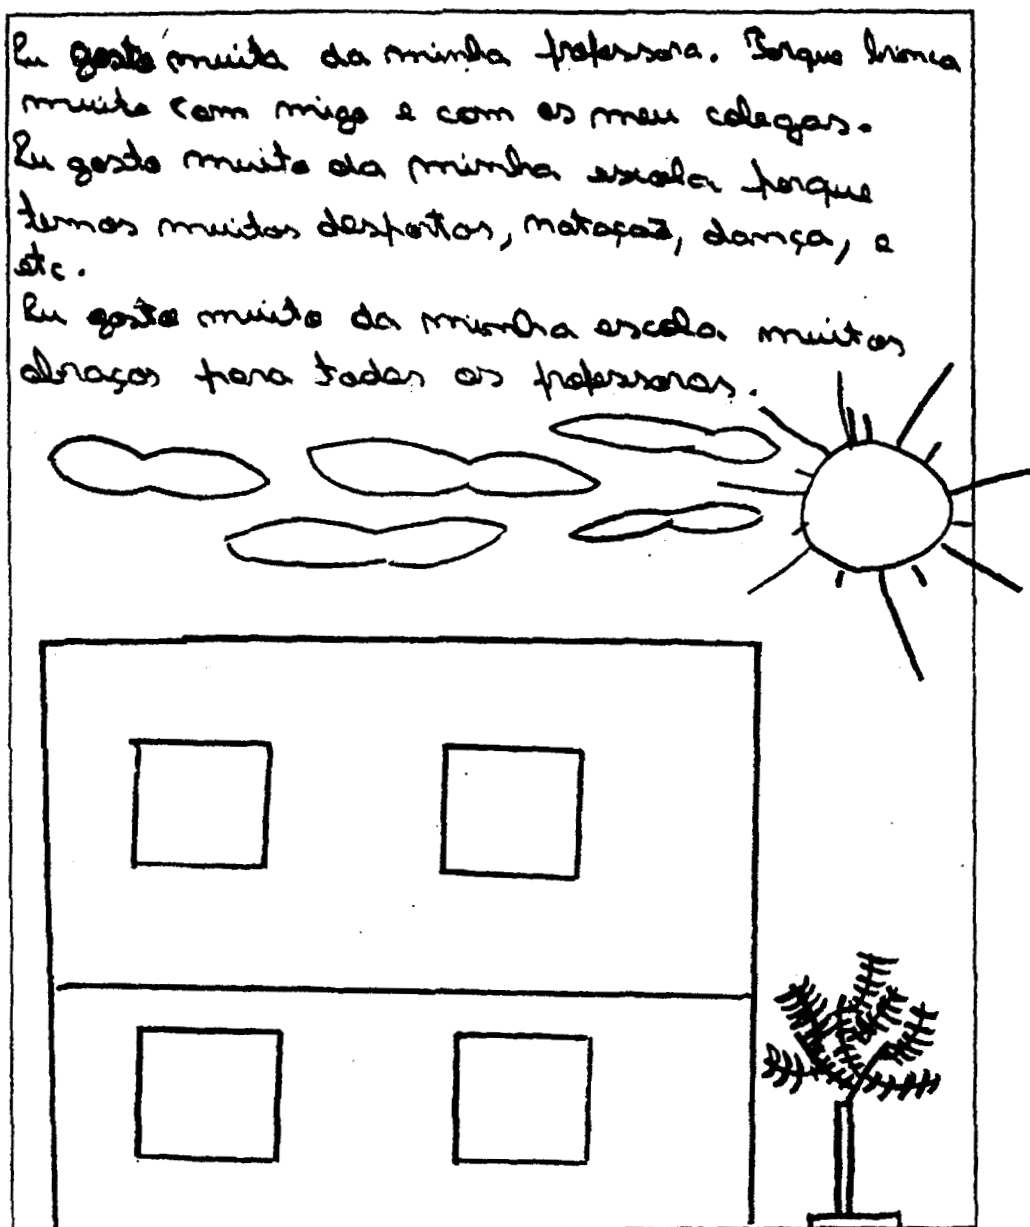 Eu gosto muito da minha professora. Porque brinca
muito com migo e com os meu colegas.
Eu gosto muito da minha escola porque
temos muitos desportos, natação, dança, e
etc.
Eu gosto muito da minha escola muitos
abraços para todas as professoras.